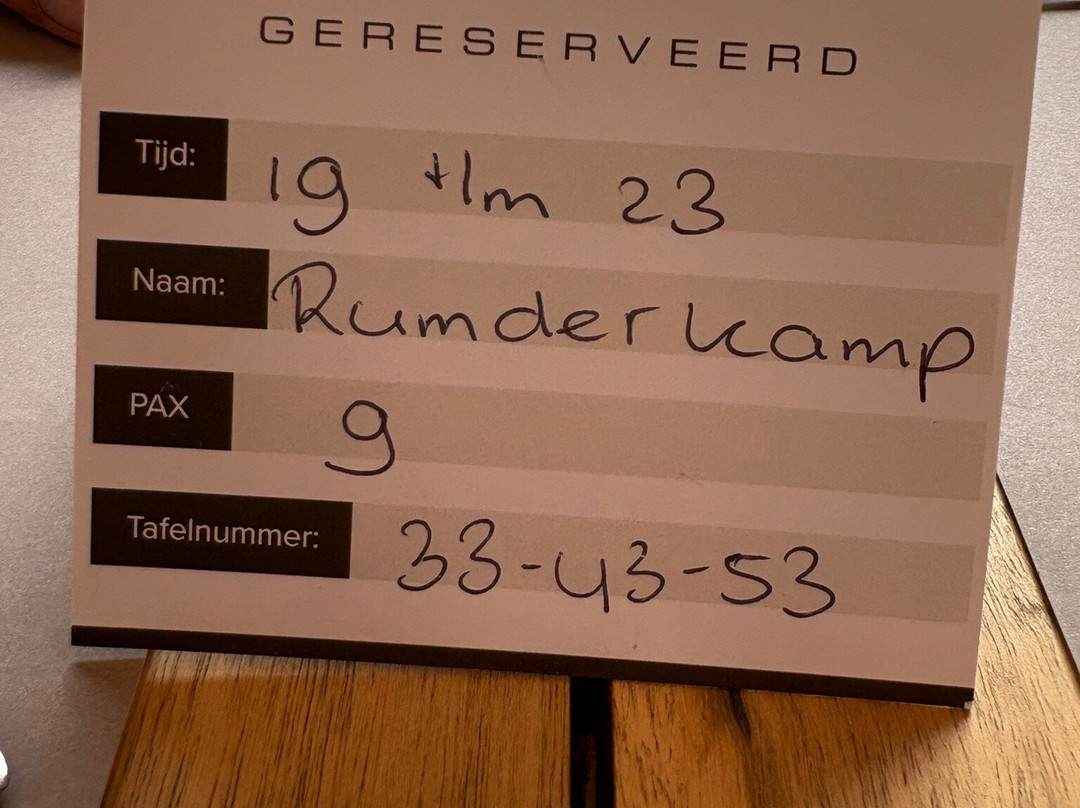 GERESERVEERD
Tijd: 19 t/m 23
Naam: Rumderkamp
PAX 9
Tafelnummer: 33-43-53